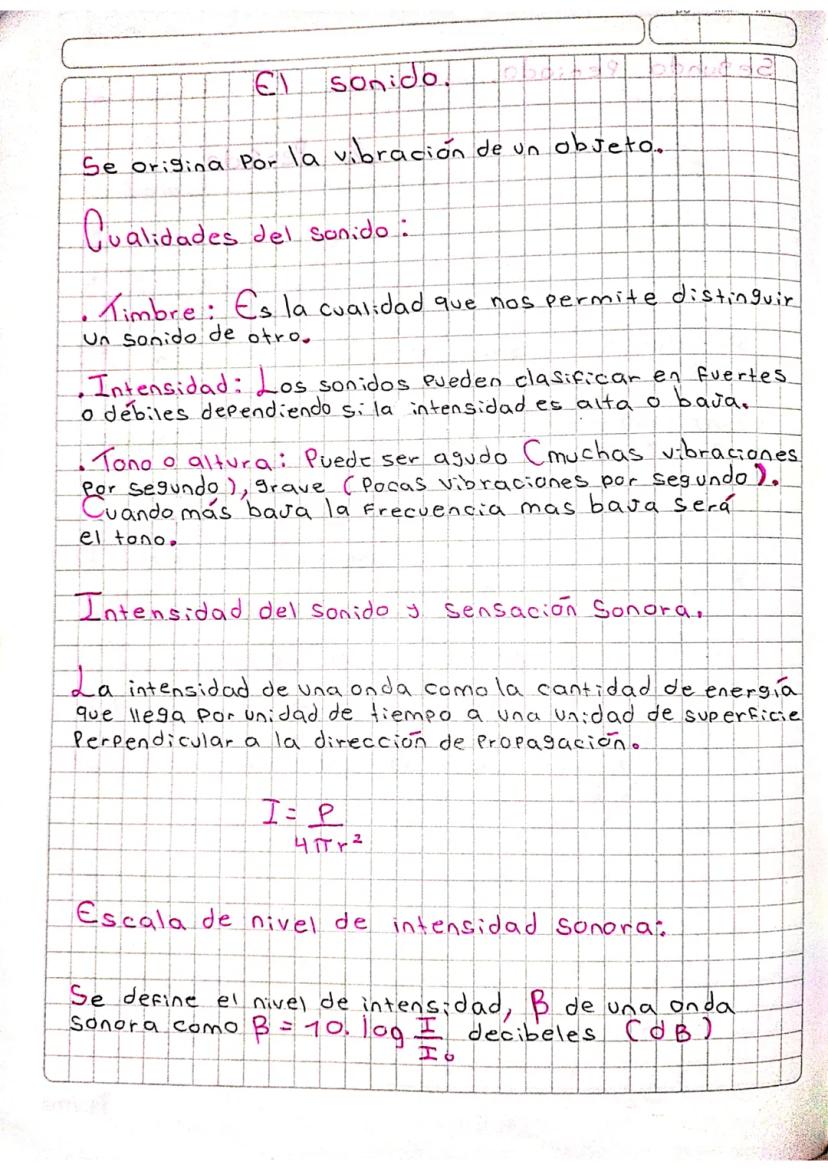 El sonido.
Se origina por la vibración de un objeto.
Cualidades del sonido:
. Timbre: Es la cualidad que nos permite distinguir
un sonido de otro.
. Intensidad: Los sonidos pueden clasificar en fuertes
o débiles dependiendo si la intensidad es alta o baja.
. Tono o altura: Puede ser agudo (muchas vibraciones
por segundo), grave (pocas vibraciones por segundo).
Cuando más baja la frecuencia mas baja será
el tono.
Intensidad del sonido y sensación sonora.
La intensidad de una onda como la cantidad de energía
que llega por unidad de tiempo a una unidad de superficie
perpendicular a la dirección de propagación.
I = P
4πr²
Escala de nivel de intensidad sonora:.
Se define el nivel de intensidad, β de una onda
sonora como β = 10. log I/I₀ decibeles (dB)